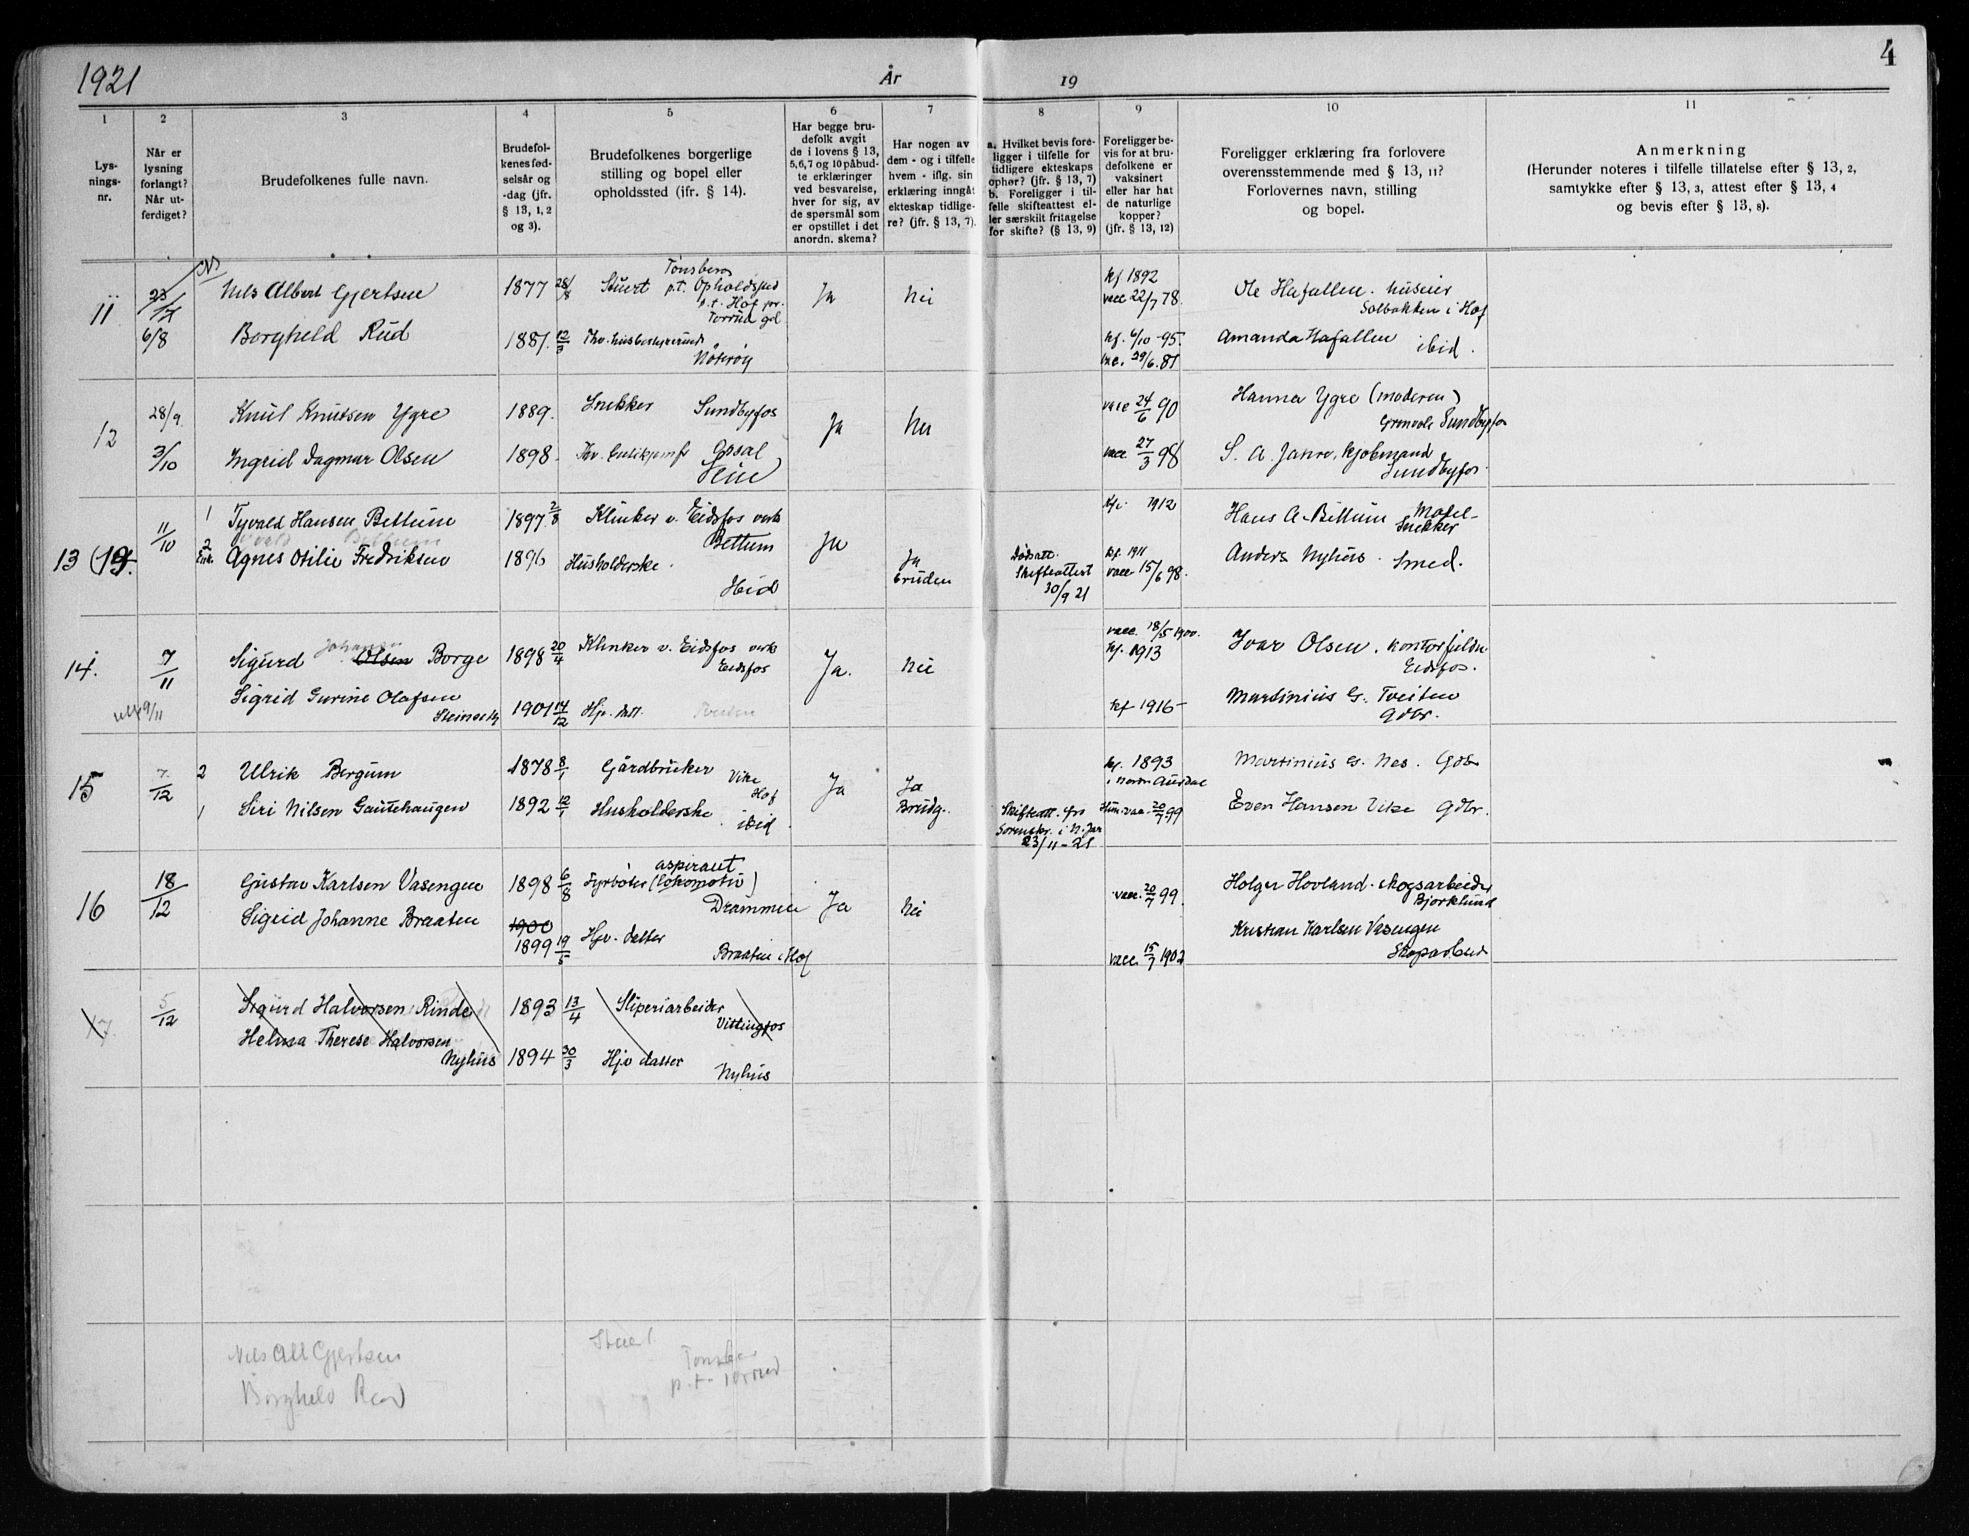 1921
År
19
4
1
2
3
4
5
6
7
8
9
10
11
Lys-
nings-
nr.
Når er
lysning
forlangt?
Når ut-
ferdiget?
Brudefolkenes fulle navn.
Brudefol-
kenes fød-
selsår og
-dag (jfr.
§ 13, 1, 2
og 3).
Brudefolkenes borgerlige
stilling og bopel eller
opholdssted (ifr. § 14).
Har begge bru-
defolk avgit
de i lovens § 13,
5,6,7 og 10 påbud-
te erklæringer
ved besvarelse,
hver for sig, av
de spørsmål som
er opstillet i det
anordn. skema?
Har nogen av
dem - og i tilfelle
hvem - iflg. sin
erklæring inngåt
ekteskap tidlige-
re? (jfr. § 13, 7).
a. Hvilket bevis fore-
ligger i tilfelle for
tidligere ekteskaps
ophør? (jfr. § 13, 7)
b. Foreligger i til-
felle skifteattest el-
ler særskilt fritagelse
for skifte? (§ 13, 9)
Foreligger be-
vis for at bru-
defolkene er
vaksinert
eller har hat
de naturlige
kopper?
(jfr. § 13, 12)
Foreligger erklæring fra forlovere
overensstemmende med § 13, 11?
Forlovernes navn, stilling
og bopel.
Anmerkning
(Herunder noteres i tilfelle tillatelse efter § 13, 2,
samtykke efter § 13, 3, attest efter § 13, 4
og bevis efter § 13, 8).
11
6/8
Nils Albert Gjertsen
1877 28/8
Stuert
Tønsberg
p.t. Opholdssted
p.t. Hof pr.
Torrud gd
Ja
Nei
kf 1892
vacc 22/7 78.
Ole Hafallen. huseier
Solbakken i Hof
Borghild Rud
1881. 12/3
Nøterøy
kf. 6/10 -95.
vac. 29/6. 81
Amanda Hafallen ibid.
12
28/9
3/10
Knut Knutsen Ygre
1889.
Snekker Sundbyfos
Ja
Nei
vacc 24/6 90
Hanna Ygre (moderen)
Sundbyfos
Ingrid Dagmar Olsen
1898.
vacc. 27/3 98
S. A. kjøbmand
Sundbyfos.
13 (19.
11/10
1
Tyvald Hansen Bettum
1897. 2/8
Klinker v. Eidsfos verk
Bettum
Ja
Kf. 1912
Hans A. Bettum Model-
snekker
2
Enk.
Agnes Otilie Fredriksen
1896
Husholderske.
Ibid
Ja
bruden
Dødsatt.
Skifteattest
30/9 21
kf. 1911
vacc 15/6 98.
Anders Nyhus. Smed.
14.
7/11
9/11
Sigurd Johansen Olsen Borge
1898 20/4
Klinker v. Eidsfos verk
Eidsfos
Ja.
Nei
vacc. 18/5 1900.
kf. 1913
Ivar Olsen. kontorfuldm
Eidsfos.
Sigrid Gurine Olafsen
1901 14/12
Hjv. datt.
kf 1916
Martinius G. Tveiten
Gdbr.
15
7/12
2
Ulrik Bergum
1878 8/1
Gårdbruker
Vike
Hof
Ja
Ja
Brudg.
kf. 1893
i Nordre Aurdal
Martinius G. Nes. Gdb
1
Siri Nilsen Gautehaugen
1892 12/1
Husholderske. ibid.
Skifteatt. fra
Sorenskr. i N. Jar
23/11 - 21
vac. 20/7 99
Even Hansen Vike Gdbr.
16
18/12
Gustav Karlsen Vasengen
1898 6/8
aspirant
Fyrbøter (Lokomotiv)
Drammen
Ja
Nei
vacc. 20/7 99.
Holger Hovland. skogsarbeider
Bjørklund
Sigrid Johanne Braaten
1900
1899 19/5
Hjv. datter
Braaten i Hof
vacc. 15/7 1902
Kristian Karlsen Vasengen
17.
5/12
Sigurd Halvorsen Rinde
1893 13/4
Sliperiarbeider
Vittingfos
Helma Therese Halvorsen
Nyhus
1894 30/3
Hjv datter
Nyhus
Nils Alb Gjertsen
Borghild Rud
p.t. Torrud